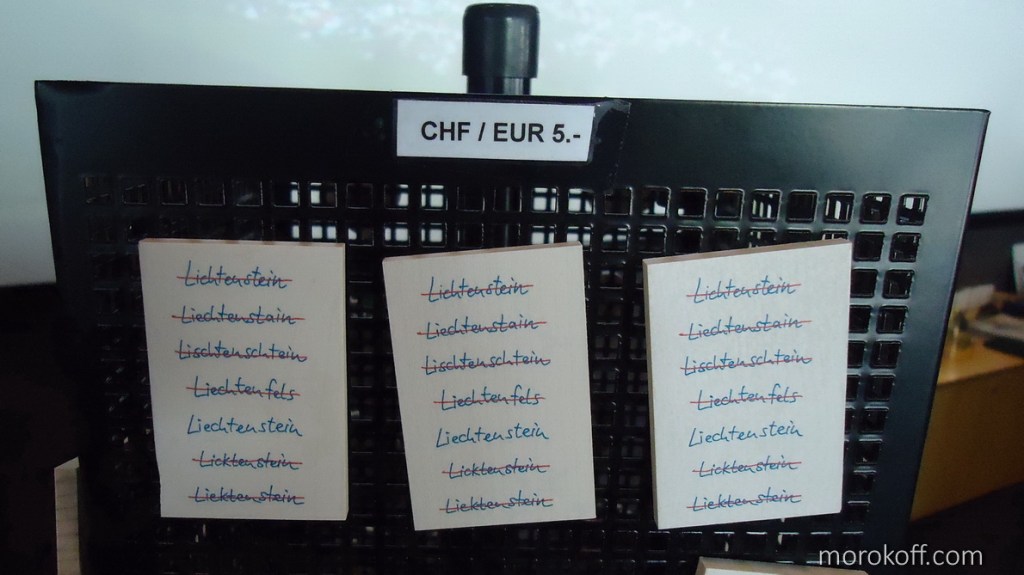 CHF / EUR 5.-
Lichtenstein
Liechtenstain
Lischtenschtein
Liechtenfels
Liechtenstein
Licktenstein
Liektenstein
Lichtenstein
Liechtenstain
Lischtenschtein
Liechtenfels
Liechtenstein
Licktenstein
Liektenstein
Lichtenstein
Liechtenstain
Lischtenschtein
Liechtenfels
Liechtenstein
Licktenstein
Liektenstein
morokoff.com